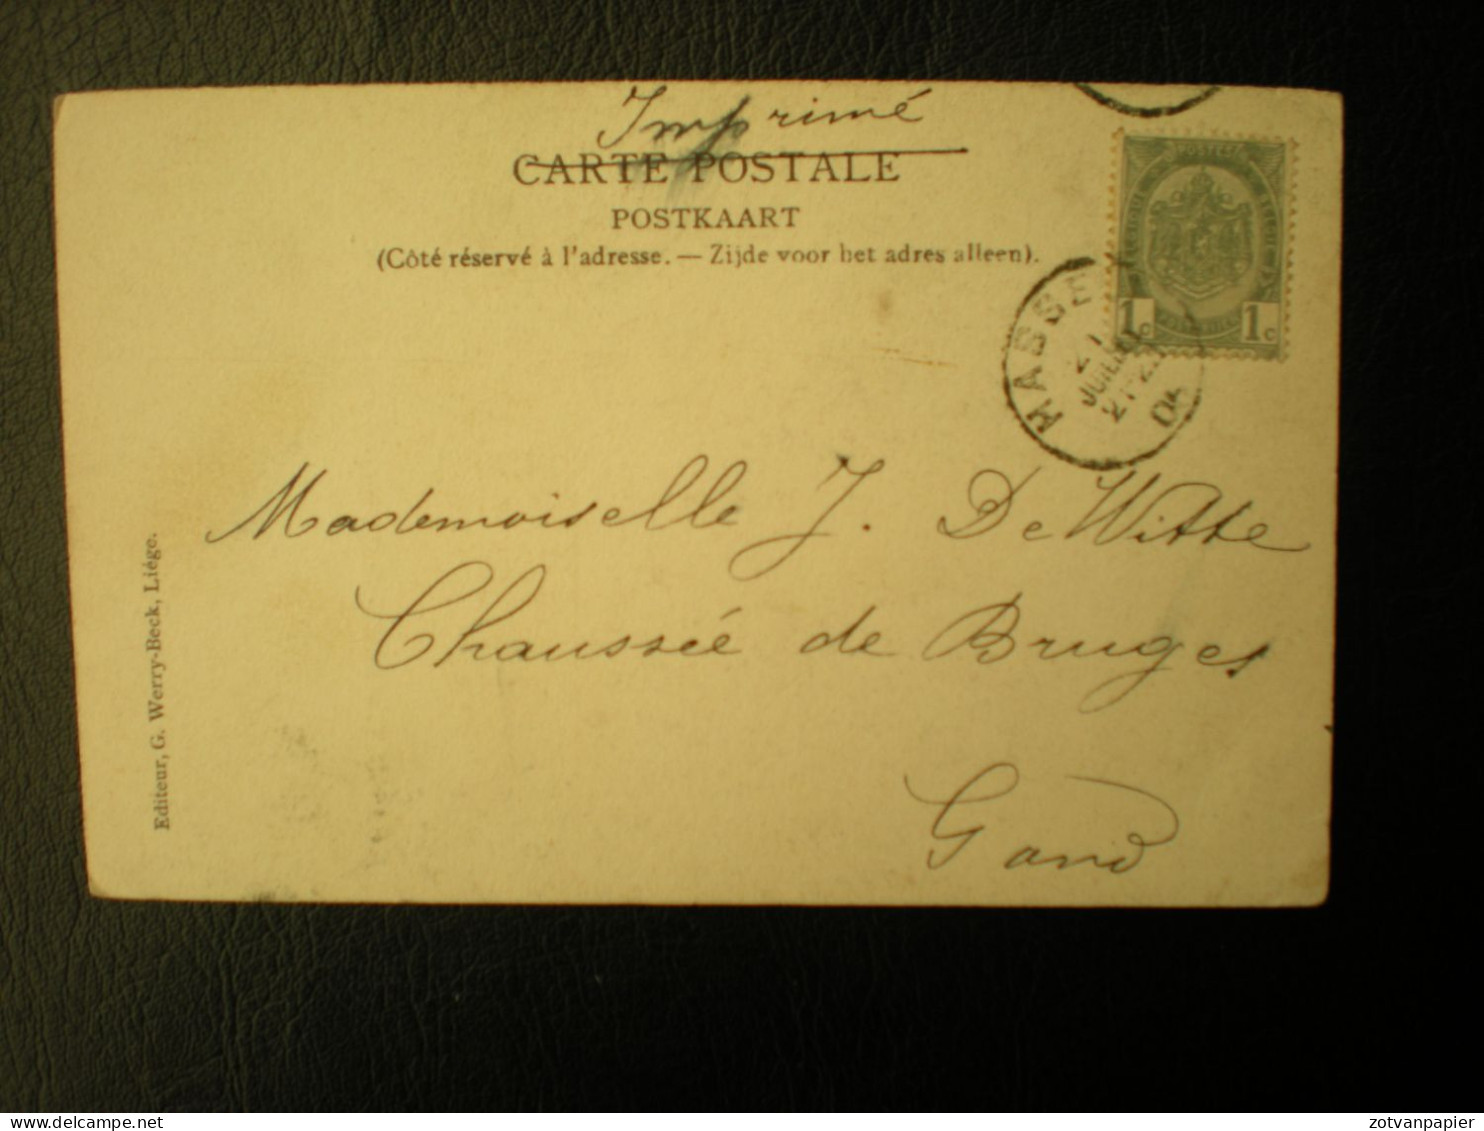 Imprimé
CARTE POSTALE
POSTKAART
(Côté réservé à l'adresse. — Zijde voor het adres alleen).
POSTES
1c 1c
HASSE
21
JUIL
21-2
04
Mademoiselle J. De Witte
Chaussée de Bruges
Gand
Editeur, G. Werry-Beck, Liége.
zotvanpapier